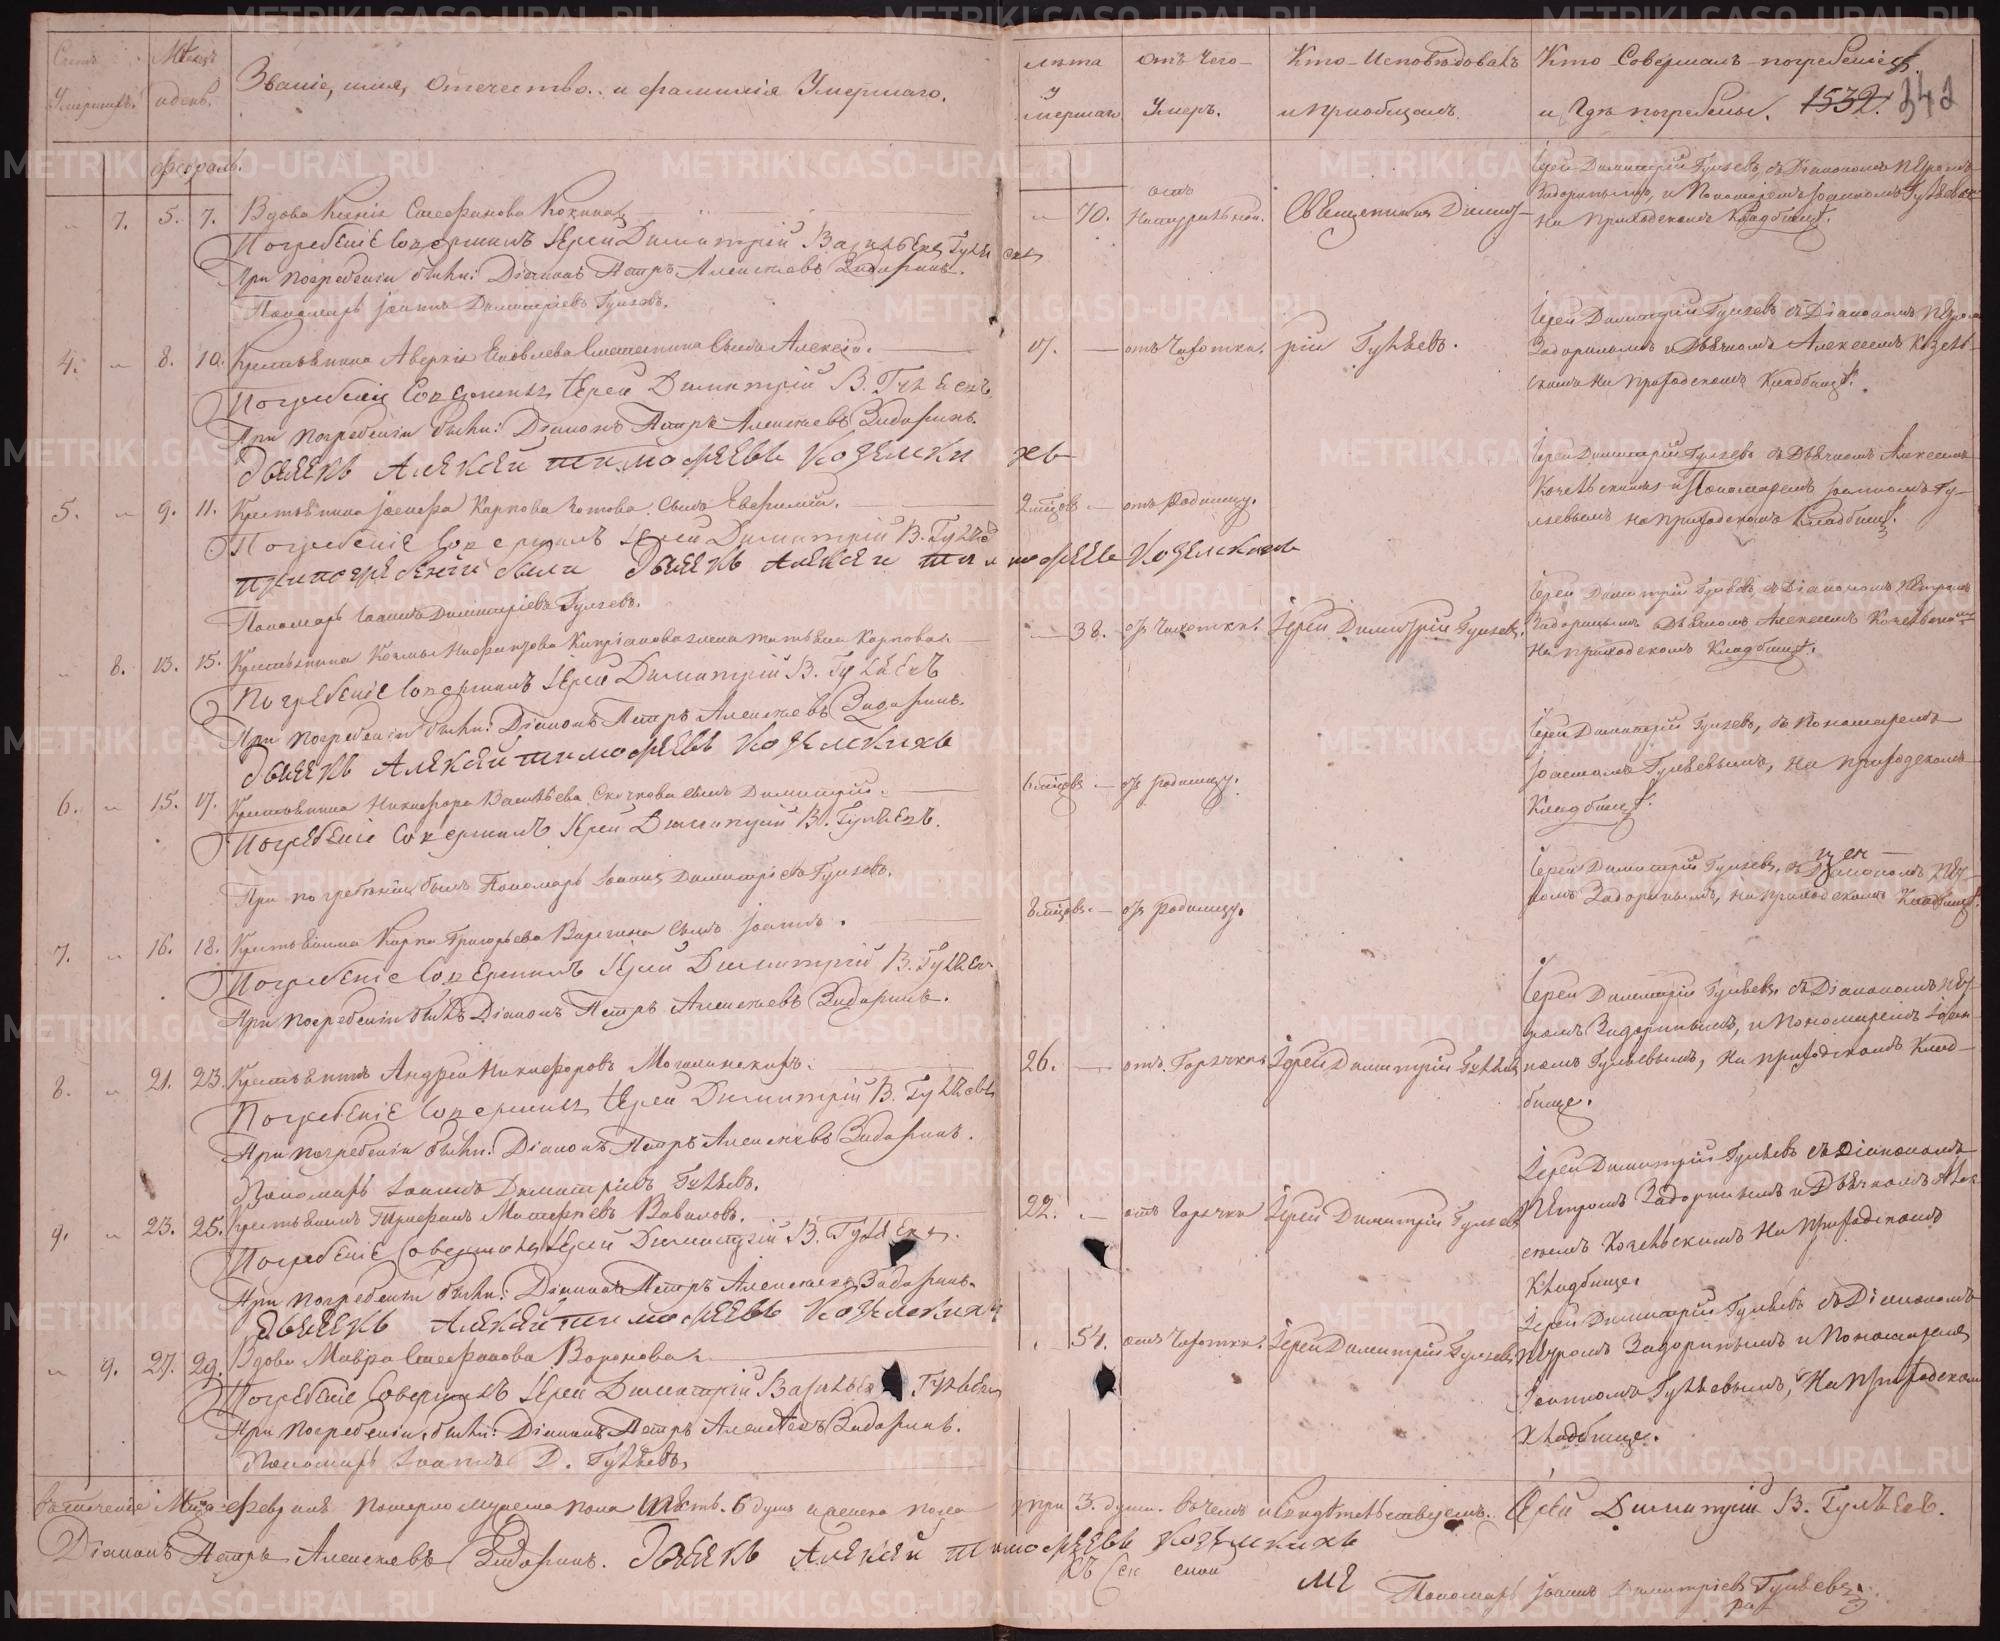 Счетъ Умершихъ.
Мѣсяцъ и день.
Званіе, имя, отечество и фамилія Умершаго.
лѣта умершаго
Отъ Чего Умеръ.
Кто Исповѣдовалъ и пріобщалъ.
Кто Совершалъ погребеніе и Гдѣ погребены.
1532. 342
февраль.
" 7. 5. 7. Вдова Стефанова
Погребеніе Совершалъ Іерей Димитрій Васильевъ Гуляевъ
При погребеніи были: Діаконъ Петръ Алексѣевъ Задоринъ.
Пономарь Іоаннъ Димитріевъ Гуляевъ.
" 70. отъ Натуральной. Священникъ Димит-
Іерей Димитрій Гуляевъ, съ Діакономъ Петромъ
Задоринымъ, и Пономаремъ Іоанномъ Гуляевымъ
На Приходскомъ Кладбищѣ.
4. " 8. 10. Крестьянина Аверкія Яковлева сынъ Алексій.
Погребеніе Совершалъ Іерей Димитрій В. Гуляевъ
При погребеніи были: Діаконъ Петръ Алексѣевъ Задоринъ.
Дьячекъ Алексей тимофеевъ Козельскихъ
17. — отъ Чахотки. рій Гуляевъ.
Іерей Димитрій Гуляевъ съ Діакономъ Петромъ
Задоринымъ и Дьячкомъ Алексѣемъ Козель-
скимъ на приходскомъ Кладбищѣ.
5. " 9. 11. Крестьянина Карпова сынъ Евфимій.
Погребеніе Совершалъ Іерей Димитрій В. Гуляевъ
припогребеніи были Дьячекъ Алексей тимофеевъ Козельскихъ
Пономарь Іоаннъ Димитріевъ Гуляевъ.
2 мѣсцов. — отъ родимцу.
Іерей Димитрій Гуляевъ съ Дьячкомъ Алексѣемъ
Козельскимъ и Пономаремъ Іоанномъ Гу-
ляевымъ на приходскомъ Кладбищѣ.
" 8. 13. 15. Крестьянина Козмы Никифорова Кипріанова жена Татьяна Карпова.
Погребеніе Совершалъ Іерей Димитрій В. Гуляевъ
При погребеніи были: Діаконъ Петръ Алексѣевъ Задоринъ.
Дьячекъ Алексей тимофеевъ Козельскихъ
— 38. отъ Чахотки. Іерей Димитрій Гуляевъ.
Іерей Димитрій Гуляевъ съ Діакономъ Петромъ
Задоринымъ и Дьячкомъ Алексѣемъ
На приходскомъ Кладбищѣ.
6. " 15. 17. Крестьянина Никифора Васильева Скочкова сынъ Димитрій.
Погребеніе Совершалъ Іерей Димитрій В. Гуляевъ.
При погребеніи былъ Пономарь Іоаннъ Димитріевъ Гуляевъ.
6 мѣсцов. — отъ родимцу.
Іерей Димитрій Гуляевъ, съ Пономаремъ
Іоанномъ Гуляевымъ, на приходскомъ
Кладбищѣ.
7. " 16. 18. Крестьянина Карпа Григорьева сынъ Іоаннъ.
Погребеніе Совершалъ Іерей Димитрій В. Гуляевъ
При погребеніи былъ Діаконъ Петръ Алексѣевъ Задоринъ.
8 мѣсцов. — отъ родимцу.
Іерей Димитрій Гуляевъ, съ Діакономъ Пет-
ромъ Задоринымъ, на приходскомъ Кладбищѣ.
8. " 21. 23. Крестьянинъ Андрей Никифоровъ
Погребеніе Совершалъ Іерей Димитрій В. Гуляевъ
При погребеніи были: Діаконъ Петръ Алексѣевъ Задоринъ.
Пономарь Іоаннъ Димитріевъ Гуляевъ.
26. — отъ Горячки Іерей Димитрій Гуляевъ
Іерей Димитрій Гуляевъ, съ Діакономъ Пет-
ромъ Задоринымъ, и Пономаремъ Іоан-
номъ Гуляевымъ, на приходскомъ Клад-
бище.
9. " 23. 25. Крестьянинъ Трифонъ Вавиловъ.
Погребеніе Совершалъ Іерей Димитрій В. Гуляевъ.
При погребеніи были: Діаконъ Петръ Алексѣевъ Задоринъ.
Дьячекъ Алексей тимофеевъ Козельскихъ
22. — отъ Горячки Іерей Димитрій Гуляевъ
Іерей Димитрій Гуляевъ съ Діакономъ
Петромъ Задоринымъ и Дьячкомъ Алек-
сѣемъ Козельскимъ на приходскомъ
Кладбище.
" 9. 27. 29. Вдова Мавра Стефанова Воронова.
Погребеніе Совершалъ Іерей Димитрій Васильевъ Гуляевъ
При погребеніи были: Діаконъ Петръ Алексѣевъ Задоринъ.
Пономарь Іоаннъ Д. Гуляевъ.
54. отъ Чахотки. Іерей Димитрій Гуляевъ
Іерей Димитрій Гуляевъ съ Діакономъ
Петромъ Задоринымъ и Пономаремъ
Іоанномъ Гуляевымъ, на приходскомъ
Кладбище.
Въ теченіе Мѣсяца февраля померло мужеска пола шесть. 6 душъ и женска пола три 3. души. въ чемъ и свидѣтельствуемъ. Іерей Димитрій В. Гуляевъ.
Діаконъ Петръ Алексѣевъ Задоринъ. Дьячекъ Алексей тимофеевъ Козельскихъ
Пономарь Іоаннъ Димитріевъ Гуляевъ.